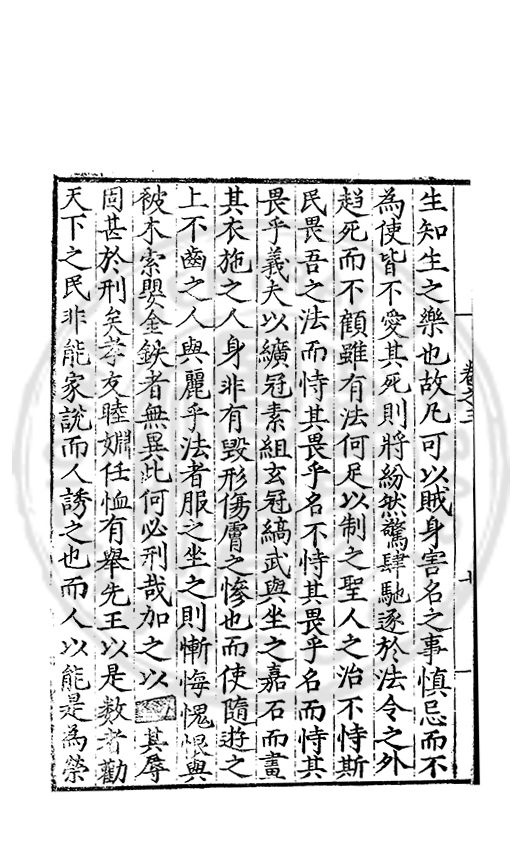 卷之三
生知生之樂也故凡可以賊身害名之事慎忌而不
為使皆不愛其死則將紛然驚肆馳逐於法令之外
趍死而不顧雖有法何足以制之聖人之治不恃斯
民畏吾之法而恃其畏乎名不恃其畏乎名而恃其
畏乎義夫以纊冠素組玄冠縞武與坐之嘉石而畫
其衣施之人身非有毀形傷膚之慘也而使隨遊之
上不齒之人與麗乎法者服之坐之則慚悔愧恨與
被木索嬰金鉄者無異此何必刑哉加之以其辱
固甚於刑矣孝友睦婣任恤有舉先王以是数者勸
天下之民非能家說而人誘之也而人以能是為榮